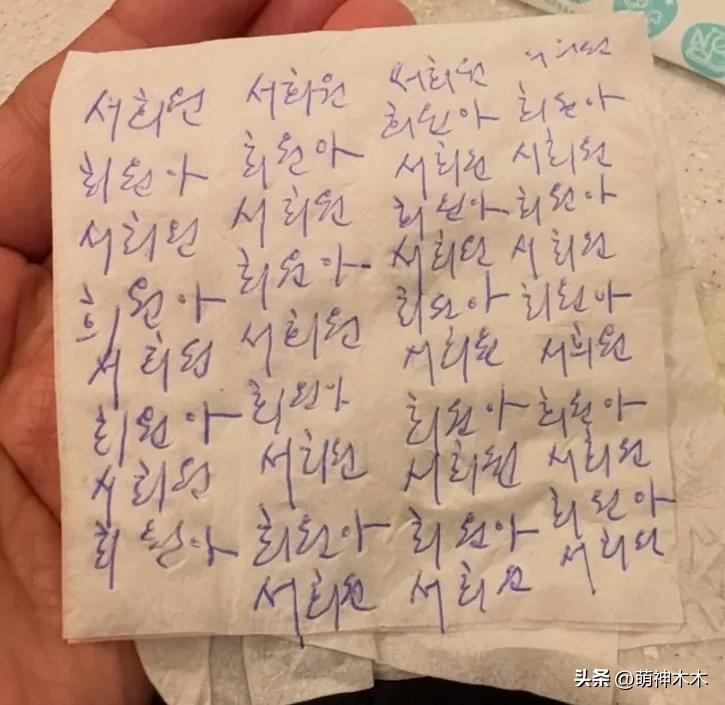 서희원
희원아
서희원
희원아
서희원
희원아
서희원
희원아
서희원
희원아
서희원
희원아
서희원
희원아
서희원
희원아
서희원
서희원
희원아
서희원
희원아
서희원
희원아
서희원
희원아
서희원
희원아
서희원
서희원
희원아
서희원
희원아
서희원
희원아
서희원
희원아
서희원
희원아
서희원
头条 @萌神木木